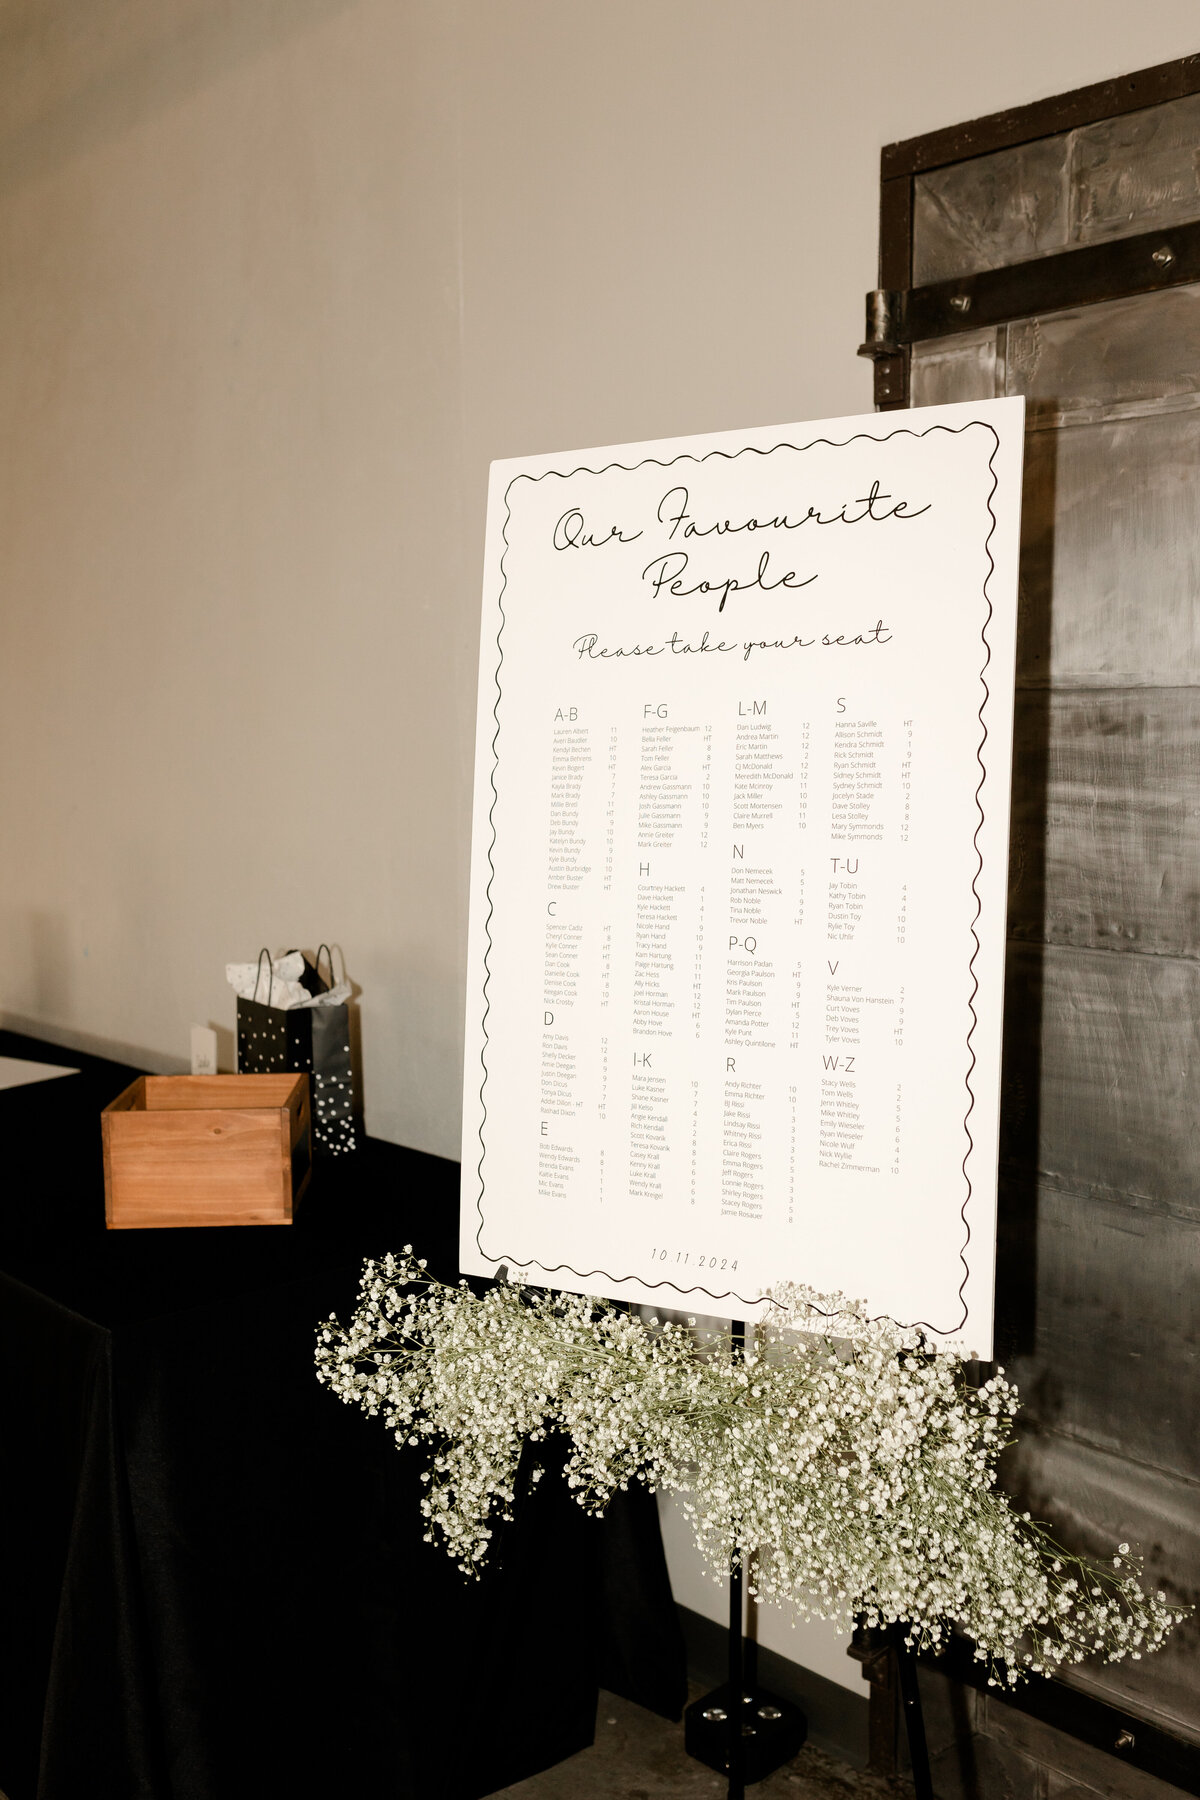 Our Favourite
People
Please take your seat
A-B
Lauren Albert 11
Averi Baudler 10
Kendyl Bechen HT
Emma Behrens 10
Kevin Bogert HT
Janice Brady 7
Kayla Brady 7
Mark Brady 7
Millie Bretl 11
Dan Bundy HT
Deb Bundy 9
Jay Bundy 10
Katelyn Bundy 10
Kevin Bundy 9
Kyle Bundy 10
Austin Burbridge 10
Amber Buster HT
Drew Buster HT
C
Spencer Cadiz HT
Cheryl Conner 8
Kyle Conner HT
Sean Conner HT
Dan Cook 8
Danielle Cook HT
Denise Cook 8
Keegan Cook 10
Nick Crosby HT
D
Amy Davis 12
Ron Davis 12
Shelly Decker 8
Amie Deegan 9
Justin Deegan 9
Don Dicus 7
Tonya Dicus 7
Addie Dillon - HT HT
Rashad Dixon 10
E
Bob Edwards 8
Wendy Edwards 8
Brenda Evans 1
Kaitie Evans 1
Mic Evans 1
Mike Evans 1
F-G
Heather Feigenbaum 12
Bella Feller HT
Sarah Feller 8
Tom Feller 8
Alex Garcia HT
Teresa Garcia 2
Andrew Gassmann 10
Ashley Gassmann 10
Josh Gassmann 10
Julie Gassmann 9
Mike Gassmann 9
Annie Greiter 12
Mark Greiter 12
H
Courtney Hackett 4
Dave Hackett 1
Kyle Hackett 4
Teresa Hackett 1
Nicole Hand 9
Ryan Hand 10
Tracy Hand 9
Kam Hartung 11
Paige Hartung 11
Zac Hess 11
Ally Hicks HT
Joel Horman 12
Kristal Horman 12
Aaron House HT
Abby Hove 6
Brandon Hove 6
I-K
Mara Jensen 10
Luke Kasner 7
Shane Kasner 7
Jill Kelso 4
Angie Kendall 4
Rich Kendall 2
Scott Kovarik 8
Teresa Kovarik 8
Casey Krall 8
Kenny Krall 6
Luke Krall 6
Wendy Krall 6
Mark Kreigel 8
L-M
Dan Ludwig 12
Andrea Martin 12
Eric Martin 12
Sarah Matthews 2
CJ McDonald 12
Meredith McDonald 12
Kate Mcinroy 11
Jack Miller 10
Scott Mortensen 10
Claire Murrell 11
Ben Myers 10
N
Don Nemecek 5
Matt Nemecek 5
Jonathan Neswick 1
Rob Noble 9
Tina Noble 9
Trevor Noble HT
P-Q
Harrison Padan 5
Georgia Paulson HT
Kris Paulson 9
Mark Paulson 9
Tim Paulson HT
Dylan Pierce 5
Amanda Potter 12
Kyle Punt 11
Ashley Quintilone HT
R
Andy Richter 10
Emma Richter 10
BJ Rissi 1
Jake Rissi 3
Lindsay Rissi 3
Whitney Rissi 3
Erica Rissi 3
Claire Rogers 5
Emma Rogers 5
Jeff Rogers 3
Lonnie Rogers 3
Shirley Rogers 3
Stacey Rogers 5
Jamie Rosauer 8
S
Hanna Saville HT
Allison Schmidt 9
Kendra Schmidt 1
Rick Schmidt 9
Ryan Schmidt HT
Sidney Schmidt HT
Sydney Schmidt 10
Jocelyn Stade 2
Dave Stolley 8
Lesa Stolley 8
Mary Symmonds 12
Mike Symmonds 12
T-U
Jay Tobin 4
Kathy Tobin 4
Ryan Tobin 4
Dustin Toy 10
Rylie Toy 10
Nic Uhlir 10
V
Kyle Verner 2
Shauna Von Hanstein 7
Curt Voves 9
Deb Voves 9
Trey Voves HT
Tyler Voves 10
W-Z
Stacy Wells 2
Tom Wells 2
Jenn Whitley 5
Mike Whitley 5
Emily Wieseler 6
Ryan Wieseler 6
Nicole Wulf 4
Nick Wyllie 4
Rachel Zimmerman 10
10.11.2024